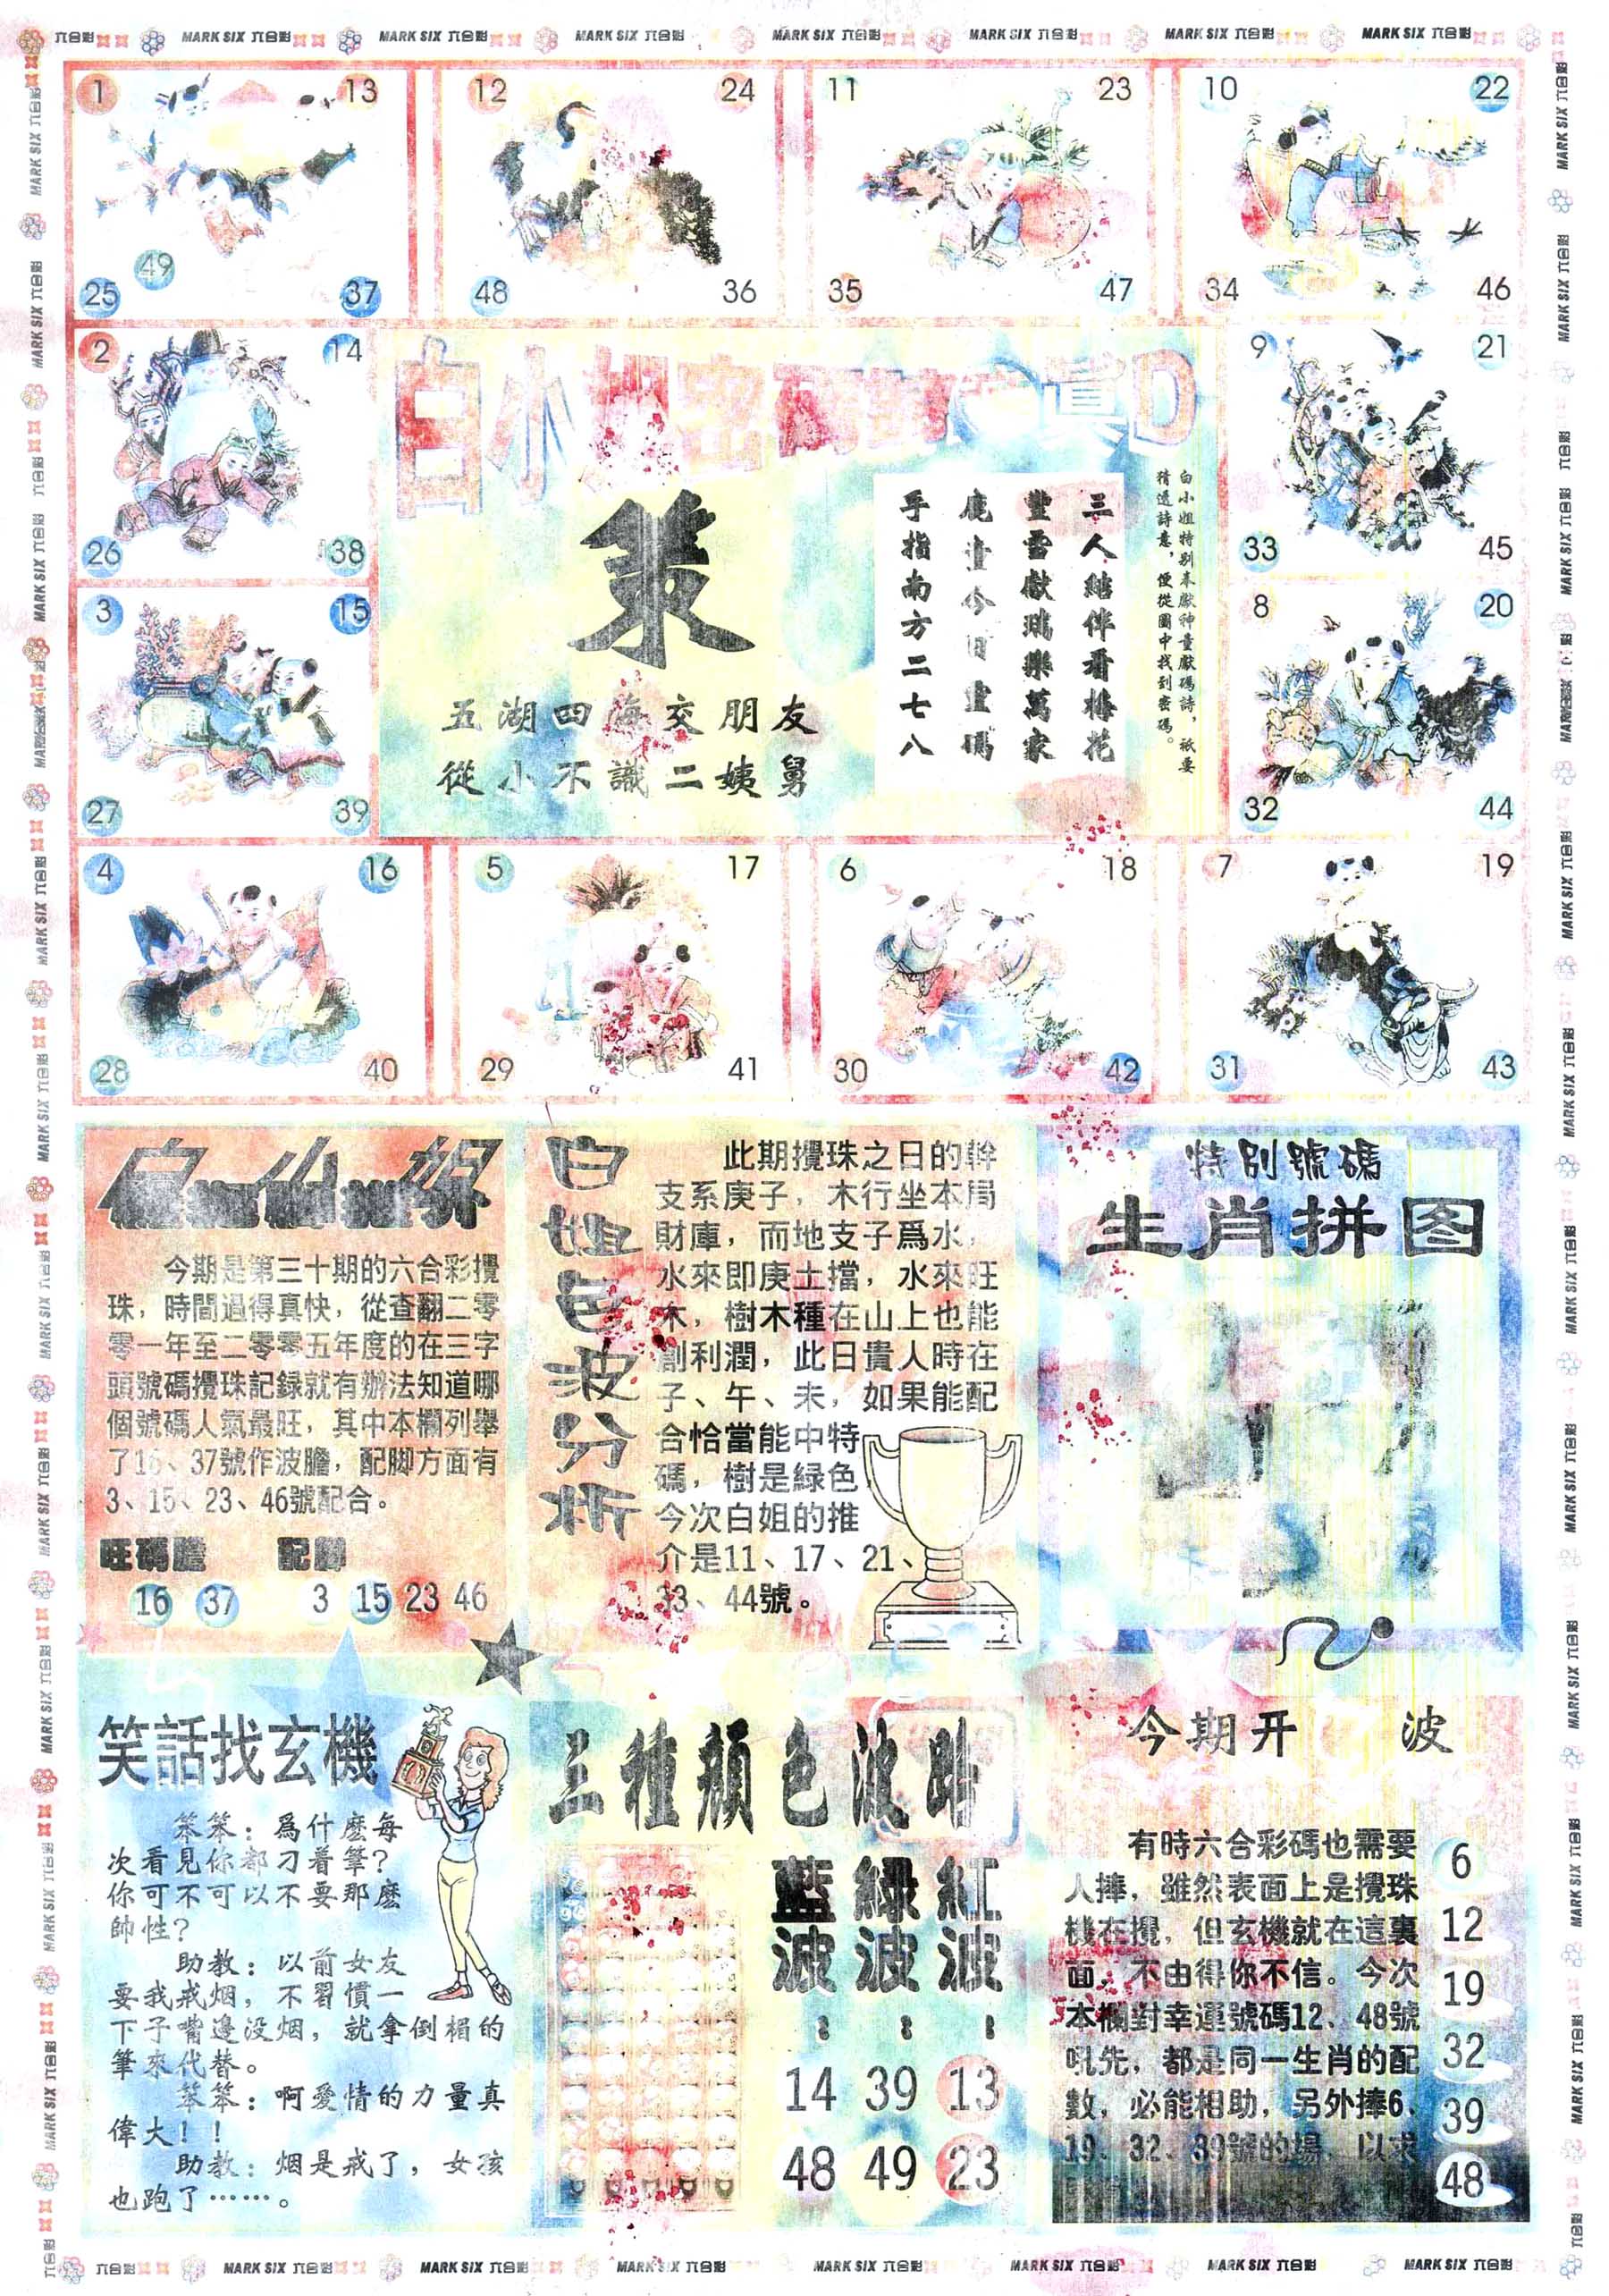 六合彩 MARK SIX 六合彩 MARK SIX 六合彩 MARK SIX 六合彩 MARK SIX 六合彩 MARK SIX 六合彩 MARK SIX 六合彩 MARK SIX 六合彩
1 13 12 24 11 23 10 22
49
25 37 48 36 35 47 34 46
2 14 9 21
26 38 33 45
3 15 8 20
27 39 32 44
4 16 5 17 6 18 7 19
28 40 29 41 30 42 31 43
白小姐
策
五湖四海交朋友
從小不識二姨舅
白小姐特别奉獻神童獻碼詩，衹要
猜透詩意，便從圖中找到密碼。
三人結伴看梅花
豐雪獻瑞樂萬家
手指南方二七八
白小姐
今期是第三十期的六合彩攪
珠，時間過得真快，從查翻二零
零一年至二零零五年度的在三字
頭號碼攪珠記録就有辦法知道哪
個號碼人氣最旺，其中本欄列舉
了16、37號作波膽，配脚方面有
3、15、23、46號配合。
旺碼膽 配脚
16 37 3 15 23 46
白姐色波分析
此期攪珠之日的幹
支系庚子，木行坐本局
財庫，而地支子爲水，
水來即庚土擋，水來旺
木，樹木種在山上也能
創利潤，此日貴人時在
子、午、未，如果能配
合恰當能中特
碼，樹是緑色
今次白姐的推
介是11、17、21、
33、44號。
特别號碼
生肖拼图
笑話找玄機
笨笨：爲什麽每
次看見你都刁着筆？
你可不可以不要那麽
帥性？
助教：以前女友
要我戒烟，不習慣一
下子嘴邊没烟，就拿倒楣的
筆來代替。
笨笨：啊愛情的力量真
偉大！！
助教：烟是戒了，女孩
也跑了……。
三種顔色波
藍波： 緑波： 紅波：
14 39 13
48 49 23
今期开 波
有時六合彩碼也需要
人捧，雖然表面上是攪珠
機在攪，但玄機就在這裏
面，不由得你不信。今次
本欄對幸運號碼12、48號
吼先，都是同一生肖的配
數，必能相助，另外捧6、
19、32、39號的場，以求
6
12
19
32
39
48
六合彩 MARK SIX 六合彩 MARK SIX 六合彩 MARK SIX 六合彩 MARK SIX 六合彩 MARK SIX 六合彩 MARK SIX 六合彩 MARK SIX 六合彩